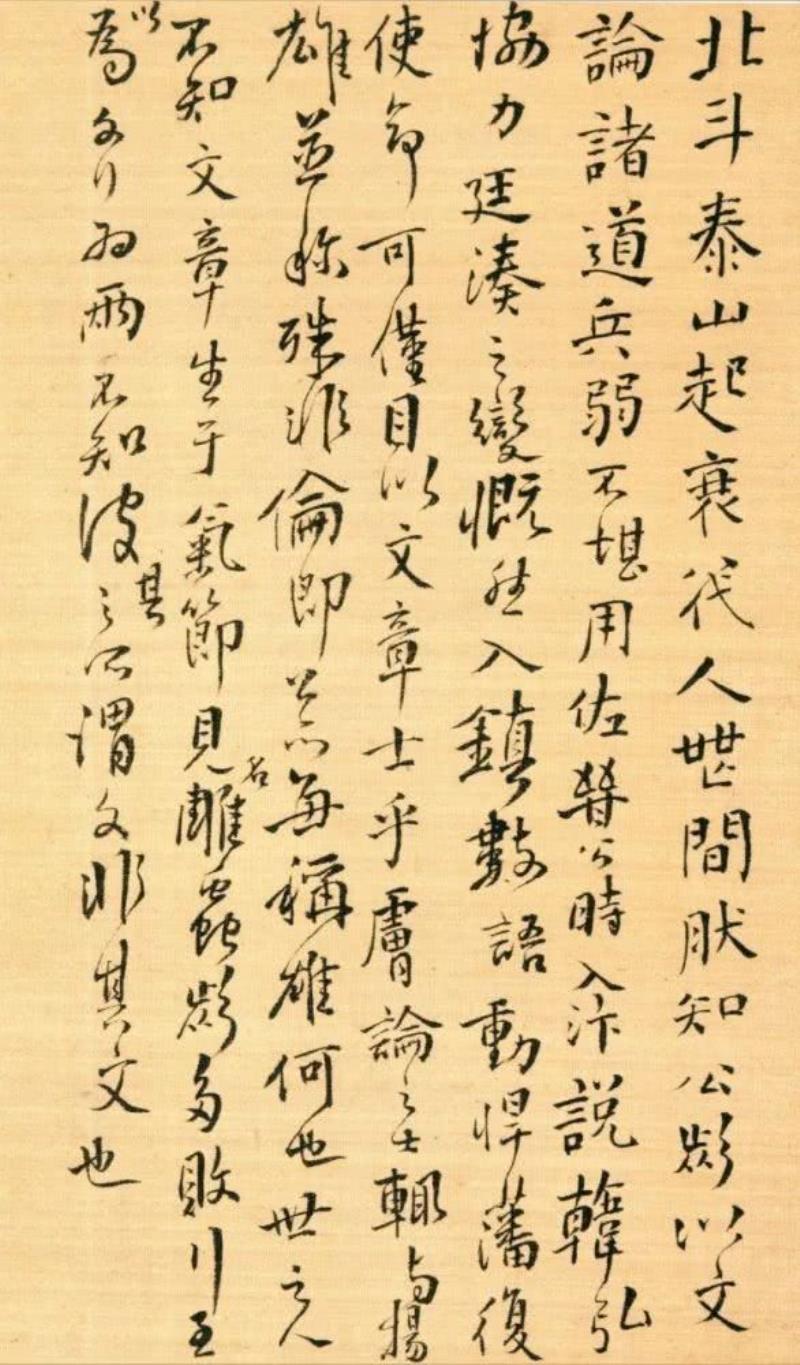 北斗泰山起衰代人世間肰知公以文
論諸道兵弱不堪用佐晉公時入汴說韓弘
協力廷湊之變慨然入鎮數語動悍藩復
使命可僅目以文章士乎膚論之士輒與揚
雄並称殊非倫即公亦每稱雄何也世之人
不知文章生于氣節見名雕蟲多敗行至
以為文行為兩不知彼其之所謂文非其文也